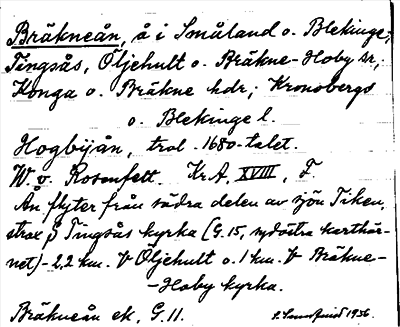 Bräkneån, å i Småland o. Blekinge;
Tingsås, Öljehult o. Bräkne-Hoby sr,;
Konga o. Bräkne hdr; Kronobergs
o. Blekinge l.
Hogbijån, trol. 1680-talet.
W. v. Rosenfelt. Kr.A, XVIII, F.
Ån flyter från södra delen av sjön Tiken,
strax S Tingsås kyrka (G.15, sydöstra karthör-
net) - 2,2 km. V Öljehult o. 1 km. V Bräkne-
-Hoby kyrka.
Bräkneån ek. G.11.
1936.